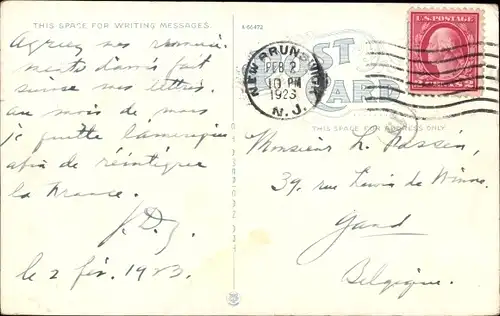 THIS SPACE FOR WRITING MESSAGES.
A-66473
Agréez mes remerci-
ments d'avoir fait
suivre mes lettres.
au mois de mars
je quitte l'amérique
afin de réintégrer
la France.
le 2 fév. 1923.
POST
CARD
NEW BRUNSWICK
FEB 2
10 PM
1923
N.J.
U.S. POSTAGE
THIS SPACE FOR ADDRESS ONLY
Monsieur L. Passén,
39, rue Levis de Winne
Gand
Belgique.